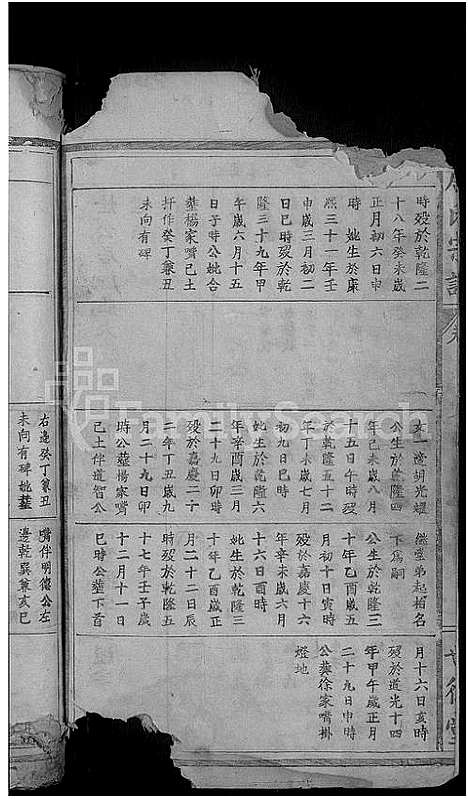 時歿於乾隆二
十八年癸未歲
正月初六日申
時　妣生於康
熙三十一年壬
申歲三月初二
日巳時歿於乾
隆三十九年甲
午歲六月十五
日子時公妣合
塟楊家嘴己土
扦作癸丁兼丑
未向有碑
女一適胡光耀
公生於乾隆四
年己未歲八月
十五日午時歿
於乾隆五十二
年丁未歲七月
初九日巳時
妣生於乾隆六
年辛酉歲三月
二十九日卯時
歿於嘉慶二十
二年丁丑歲九
月二十九日卯
時公塟楊家嘴
己土伴道智公
右邊癸丁兼丑
未向有碑妣塟
繼堂弟起相名
下為嗣
公生於乾隆三
十年乙酉歲五
月初十日寅時
歿於嘉慶十六
年辛未歲六月
十六日酉時
妣生於乾隆三
十年乙酉歲正
月二十二日辰
時歿於乾隆五
十七年壬子歲
十二月十一日
巳時公塟下首
嘴伴明德公左
邊乾巽兼亥巳
月十六日亥時
歿於道光十四
年甲午歲正月
二十九日申時
公葬徐家嘴掛
燈地
FamilySearch